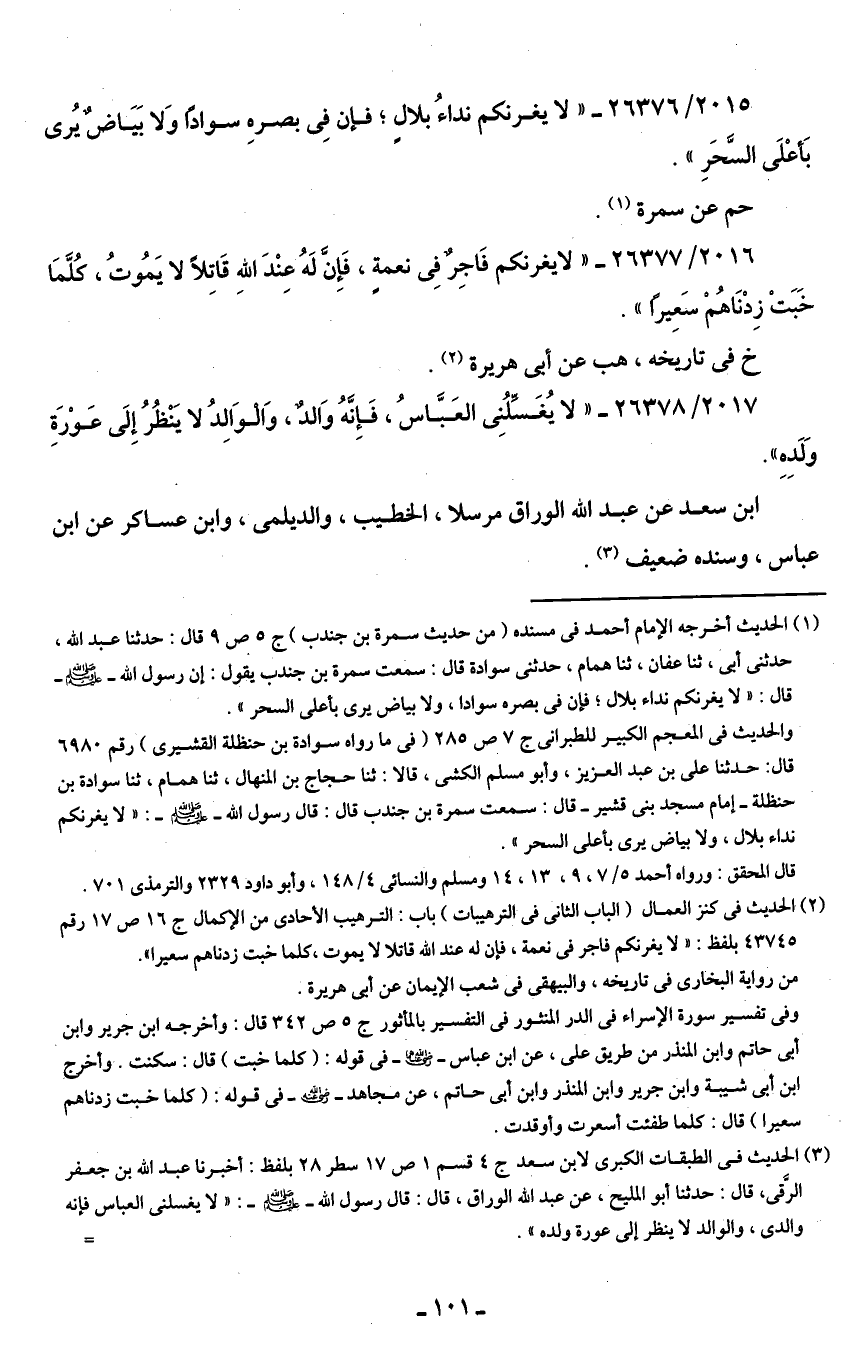 ٢٠١٥/ ٢٦٣٧٦ ـ « لا يغرنكم نداءُ بلالٍ ؛ فإن فِى بصرهِ سوادًا وَلا بَيَاضٌ يُرى
بَأعْلَى السَّحَرِ » .
حم عن سمرة (١) .
٢٠١٦/ ٢٦٣٧٧ ـ « لايغرنكم فَاجِرٌ فِى نعمةٍ ، فَإِنَّ لَهُ عِنْدَ اللهِ قَاتِلاً لا يَمُوتُ ، كُلَّمَا
خَبَتْ زِدْنَاهُمْ سَعِيرًا » .
خ فى تاريخه ، هب عن أبى هريرة (٢) .
٢٠١٧/ ٢٦٣٧٨ ـ « لا يُغَسِّلُنِى العَبَّاسُ ، فَإِنَّهُ وَالدٌ ، وَالْوالِدُ لا يَنْظُرُ إِلَى عَوْرَةِ
وَلَدِهِ».
ابن سعد عن عبد الله الوراق مرسلا ، الخطيب ، والديلمى ، وابن عساكر عن ابن
عباس ، وسنده ضعيف (٣) .
(١) الحديث أخرجه الإمام أحمد فى مسنده ( من حديث سمرة بن جندب ) ج ٥ ص ٩ قال : حدثنا عبد الله ،
حدثنى أبى ، ثنا عفان ، ثنا همام ، حدثنى سوادة قال : سمعت سمرة بن جندب يقول : إن رسول الله ـ ﷺ ـ
قال : « لا يغرنكم نداء بلال ؛ فإن فى بصره سوادا ، ولا بياض يرى بأعلى السحر » .
والحديث فى المعجم الكبير للطبرانى ج ٧ ص ٢٨٥ ( فى ما رواه سوادة بن حنظلة القشيرى ) رقم ٦٩٨٠
قال: حدثنا على بن عبد العزيز ، وأبو مسلم الكشى ، قالا : ثنا حجاج بن المنهال ، ثنا همام ، ثنا سوادة بن
حنظلة ـ إمام مسجد بنى قشير ـ قال : سمعت سمرة بن جندب قال : قال رسول الله ـ ﷺ ـ : « لا يغرنكم
نداء بلال ، ولا بياض يرى بأعلى السحر » .
قال المحقق : ورواه أحمد ٥/ ٧ ، ٩ ، ١٣ ، ١٤ ومسلم والنسائى ٤/ ١٤٨ ، وأبو داود ٢٣٢٩ والترمذى ٧٠١ .
(٢) الحديث فى كنز العمال ( الباب الثانى فى الترهيبات ) باب : الترهيب الأحادى من الإكمال ج ١٦ ص ١٧ رقم
٤٣٧٤٥ بلفظ : « لا يغرنكم فاجر فى نعمة ، فإن له عند الله قاتلا لا يموت ،كلما خبت زدناهم سعيرا».
من رواية البخارى فى تاريخه ، والبيهقى فى شعب الإيمان عن أبى هريرة .
وفى تفسير سورة الإسراء فى الدر المنثور فى التفسير بالمأثور ج ٥ ص ٣٤٢ قال : وأخرجه ابن جرير وابن
أبى حاتم وابن المنذر من طريق على ، عن ابن عباس ـ رضي الله عنهما ـ فى قوله : ( كلما خبت ) قال : سكنت . وأخرج
ابن أبى شيبة وابن جرير وابن المنذر وابن أبى حاتم ، عن مجاهد ـ رضي الله عنه ـ فى قوله : ( كلما خبت زدناهم
سعيرا ) قال : كلما طفئت أسعرت وأوقدت .
(٣) الحديث فى الطبقات الكبرى لابن سعد ج ٤ قسم ١ ص ١٧ سطر ٢٨ بلفظ : أخبرنا عبد الله بن جعفر
الرَّقى، قال : حدثنا أبو المليح ، عن عبد الله الوراق ، قال : قال رسول الله ـ ﷺ ـ : « لا يغسلنى العباس فإنه
والدى ، والوالد لا ينظر إلى عورة ولده » .
=
ـ ١٠١ ـ